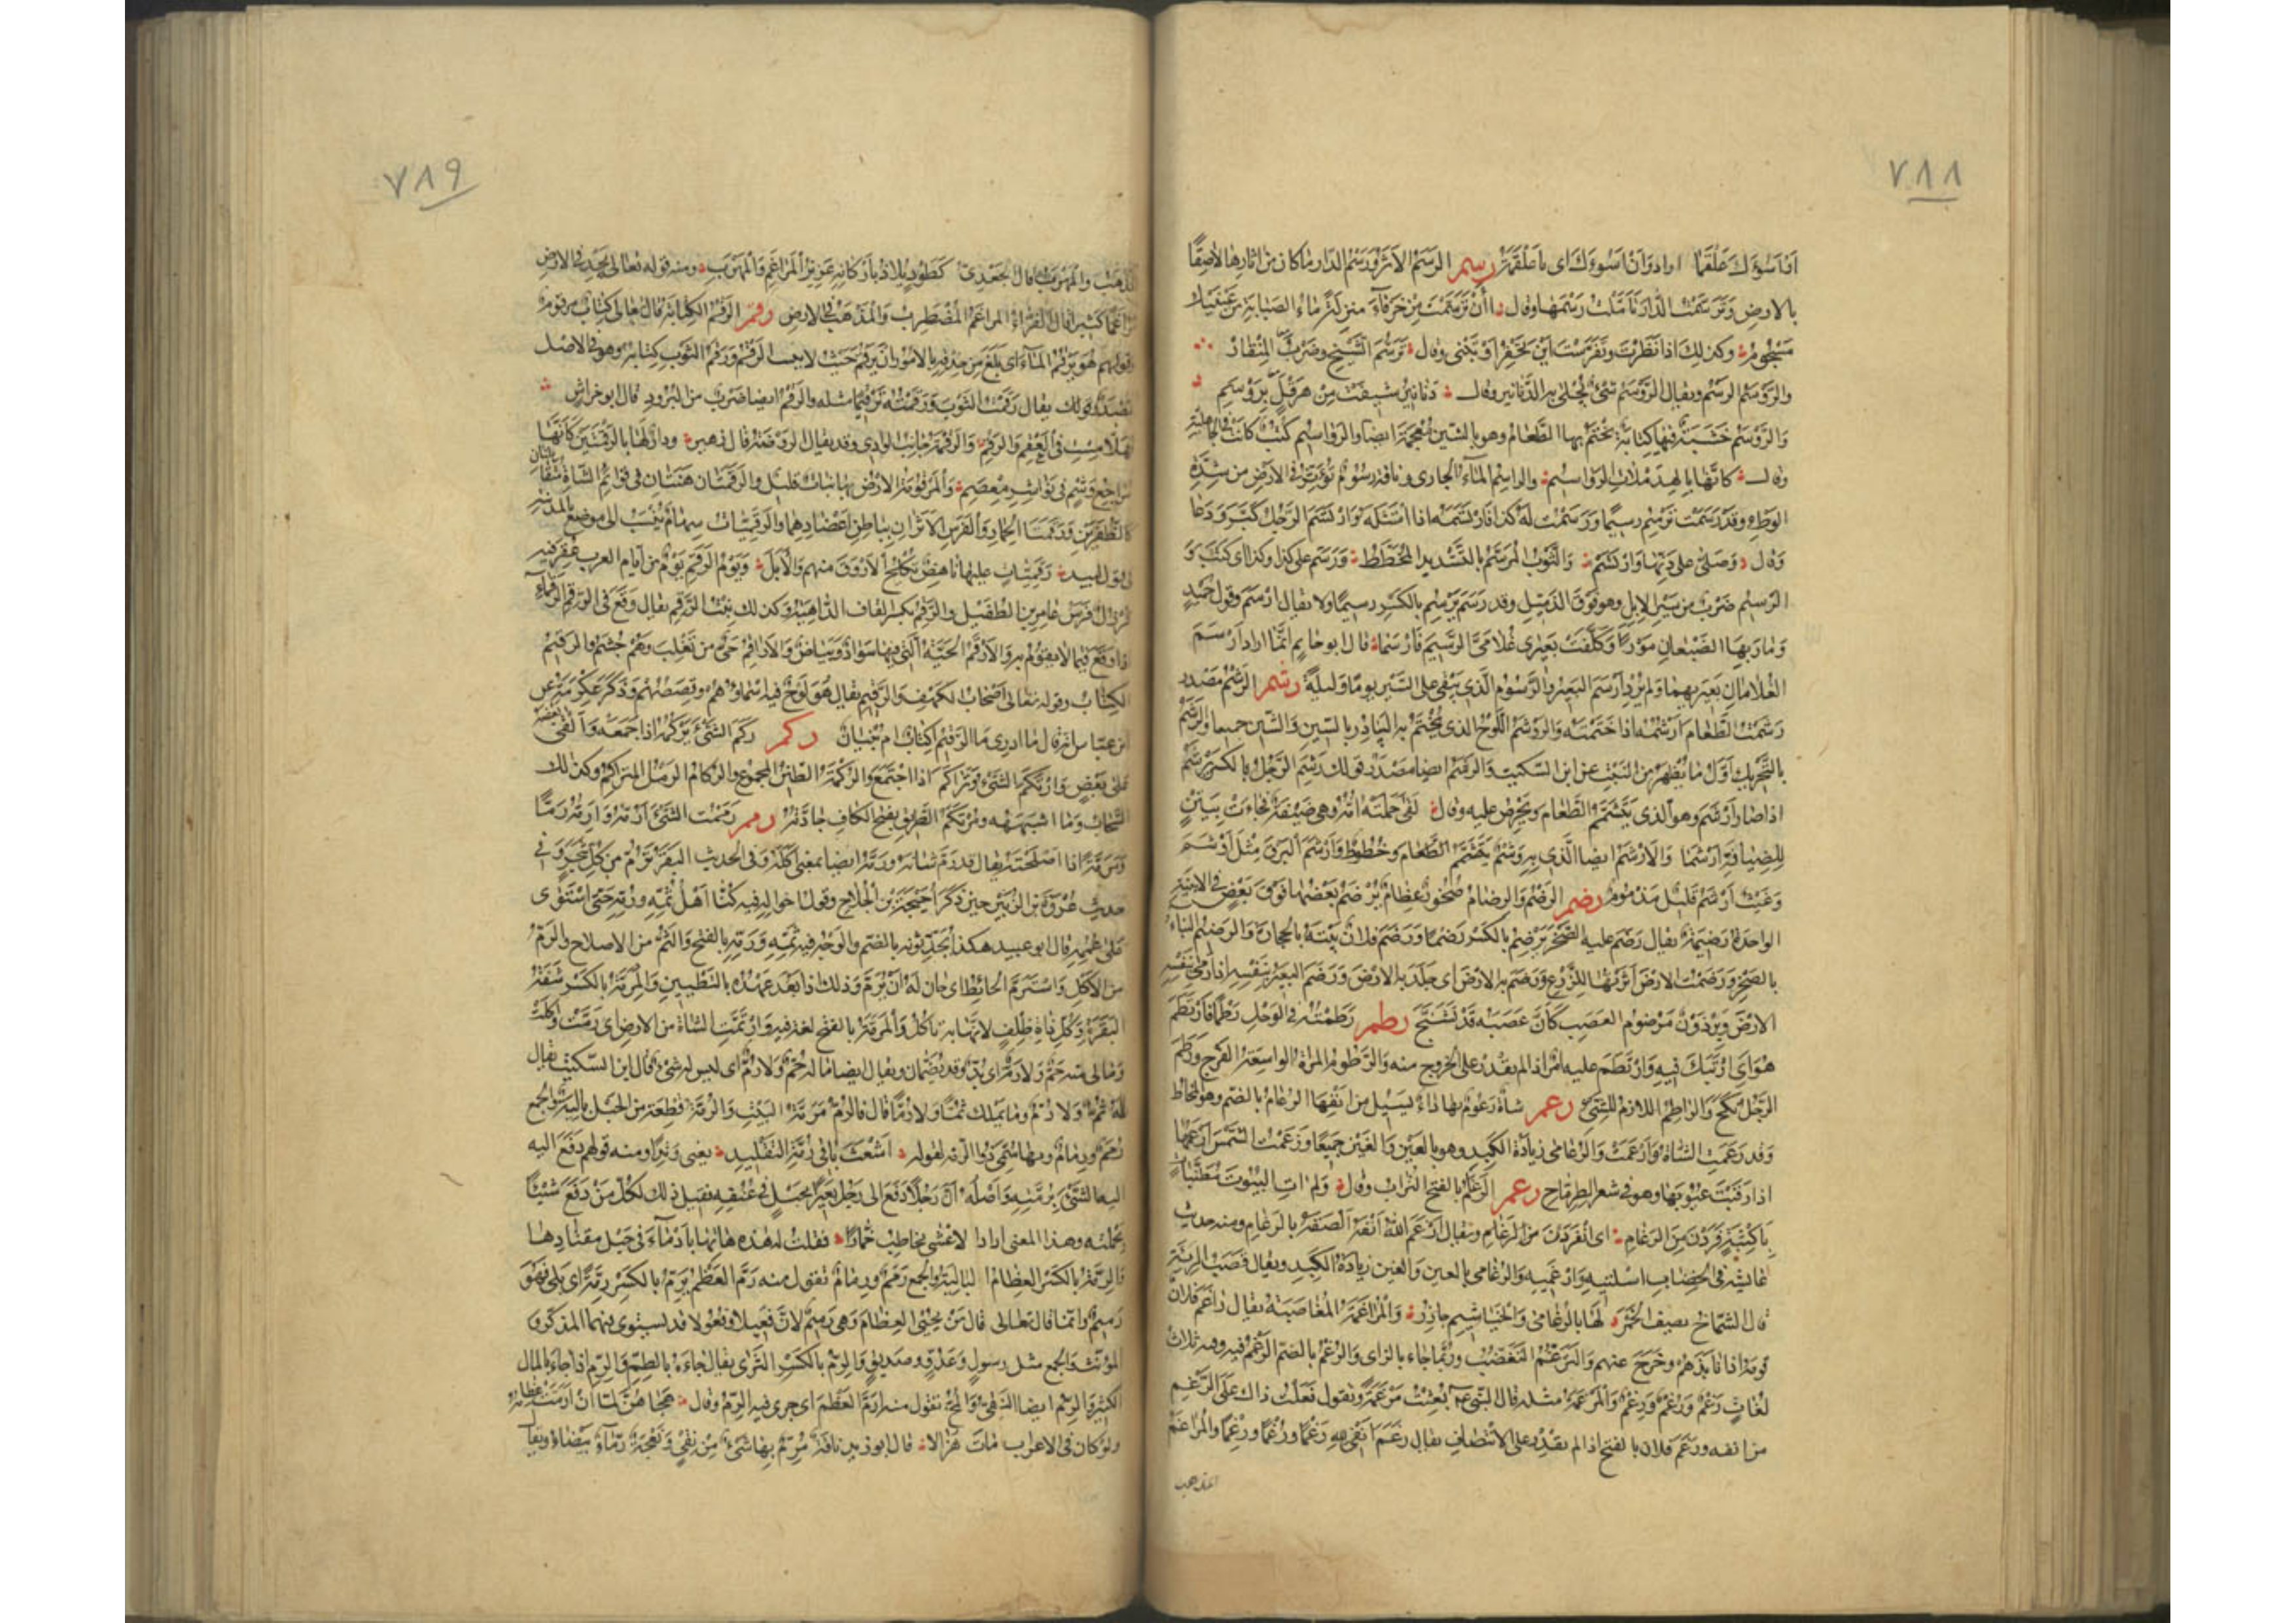 ٧٨٨
ان اسوءك علقما اراد وان اسوءك اى يا علقمة رسم الرسم الاثر ورسم الدار ما كان من اثارها لاصقًا
بالارض وترسمت الدار تأملت رسمها وقال أأن ترسمت من خرقاء منزلة ماء الصبابة من عينيك
مسجوم وكذلك اذا نظرت وتفرست اين تحفر او تبنى وقال ترسم الشيخ وضرب المنقاذ
والروسم الرسم ويقال الروسم شىء تجلى به الدنانير وقال دنانير شيفت من هرقل بروسم
والروسم خشبة فيها كتابة يختم بها الطعام وهو بالشين معجمة ايضا والرواسيم كتب كانت فى الجاهلية
وقال كانها بالهدملات الرواسيم والراسم الماء الجارى وناقة رسوم تؤثر فى الارض من شدة
الوطء وقد رسمت ترسم رسيما ورسمت له كذا فارتسمه اذا امتثله وارتسم الرجل كبر ودعا
وقال وصلى على دنها وارتسم والثوب المرسم بالتشديد المخطط ورسم على كذا وكذا اى كتب و
الرسيم ضرب من سير الابل وهو فوق الذميل وقد رسم يرسم بالكسر رسيما ولا يقال ارسم وقول حميد
وكلفت بعيرى غلامى الرسيم فارسما قال ابو حاتم انما اراد ارسم
الغلامان بعيريهما ولم يرد ارسم البعير والرسوم الذى يبقى على السير يوما وليلة رشم الرشم مصدر
رشمت الطعام ارشمه اذا ختمته والروشم اللوح الذى يختم به البيادر بالسين والشين جميعا والرشم
بالتحريك اول ما يظهر من النبت عن ابن السكيت والرشم ايضا مصدر قولك رشم الرجل بالكسر يرشم
اذا صار ارشم وهو الذى يتشمم الطعام ويحرص عليه وقال لقى حملته امه وهى ضيفة فجاءت بيتن
للضيافة ارشما والارشم ايضا الذى به وشم وخطوط وارشم البرق مثل اوشم
وغيث ارشم قليل مذموم رضم الرضم والرضام صخور عظام يرضم بعضها فوق بعض فى الابنية
الواحدة رضمة يقال رضم عليه الصخر يرضم بالكسر رضما ورضم فلان بيته بالحجارة والرضيم البناء
بالصخر ورضمت الارض اثرتها للزرع ورضم به الارض اى جلد به الارض ورضم البعير بنفسه اذا رمى بنفسه
الارض وبرذون مرضوم العصب كان عصبه قد تشنج رطم رطمته فى الوحل رطما فارتطم
هو اى ارتبك فيه وارتطم عليه امر اذا لم يقدر على الخروج منه والرطوم المراة الواسعة الفرج ورطم
الرجل نكح والراطم اللازم للشىء رعم شاة رعوم بها داء يسيل من انفها الرعام بالضم وهو المخاط
وقد رعمت الشاة وارعمت والرعامى زيادة الكبد وهو بالعين والغين جميعا ورعمت الشمس ارعمها
اذا رقبت غيوبها وهو فى شعر الطرماح رغم الرغام بالفتح التراب وقال ولم ات البيوت مطنبات
باكثبة فردن من الرغام اى انفردن من الرغام ويقال ارغم الله انفه الصقه بالرغام ومنه حديث
عائشة فى الخضاب اسلتيه وارغميه والرغامى بالعين والغين زيادة الكبد ويقال قصب الرئة
قال الشماخ يصف الحمر لها بالرغامى والخياشيم جارز والمراغمة المغاضبة يقال راغم فلان
قومه اذا نابذهم وخرج عنهم والترغم التغضب وربما جاء بالزاى والرغم بالضم الرغم وفيه ثلاث
لغات رغم ورغم ورغم والمرغمة مثله قال النبى عم بعثت مرغمة وتقول فعلت ذاك على الرغم
من انفه ورغم فلان بالفتح اذا لم يقدر على الانتصاف يقال رغم انفى لله رغما ورغما ورغما والمراغم
المذهب
٧٨٩
المذهب والمهرب قال الجعدى كطود يلاذ باركانه عزيز المراغم والمهرب ومنه قوله تعالى يجد فى الارض
مراغما كثيرا قال الفراء المراغم المضطرب والمذهب فى الارض رقم الرقم الكتابة قال تعالى كتاب مرقوم
وقولهم هو يرقم الماء اى بلغ من حذقه بالامور ان يرقم حيث لا يثبت الرقم ورقم الثوب كتابه وهو فى الاصل
مصدر قولك يقال رقمت الثوب ورقمته ترقيما مثله والرقم ايضا ضرب من البرود قال ابو خراش
فى العقم والرقم والرقمة جانب الوادى وقد يقال الروضة قال زهير ودار لها بالرقمتين كانها
مراجع وشم فى نواشر معصم والمرقومة الارض بها نبات قليل والرقمتان هنتان فى قوائم الشاة متقابلتان
كالظفرين ورقمتا الحمار والفرس الاثران بباطن اعضادهما والرقميات سهام تنسب الى موضع بالمدينة
فى قول لبيد رقميات عليها ناهض تكلح الاروق منهم والايل ويوم الرقم يوم من ايام العرب عقر فيه
قرزل فرس عامر بن الطفيل والرقم بكسر القاف الداهية وكذلك بنت الرقم يقال وقع فى الرقم الرقماء
اذا وقع فيما لا يقوم به والارقم الحية التى فيها سواد وبياض والاراقم حى من تغلب وهم جشم والرقيم
الكتاب وقوله تعالى اصحاب الكهف والرقيم يقال هو لوح فيه اسماؤهم وقصصهم وذكر عكرمة عن
ابن عباس انه قال ما ادرى ما الرقيم اكتاب ام بنيان ركم ركم الشىء يركمه اذا جمعه والقى بعضه
على بعض وارتكم الشىء وتراكم اذا اجتمع والركمة الطين المجموع والركام الرمل المتراكم وكذلك
السحاب وما اشبهه ومرتكم الطريق بفتح الكاف جادته رمم رممت الشىء ارمه وارمه رما
ومرمة اذا اصلحته يقال قد رم شانه ورمه ايضا بمعنى اكله وفى الحديث البقر ترم من كل شجر وفى
حديث عروة بن الزبير حين ذكر احيحة بن الجلاح وقول اخواله فيه كنا اهل ثمه ورمه حتى استوى
على عممه قال ابو عبيد هكذا يحدثونه بالضم والوجه فيه ثمه ورمه بالفتح والثم من الاصلاح والرم
من الاكل واسترم الحائط اى حان له ان يرم وذلك اذا بعد عهده بالتطيين والمرمة بالكسر شفة
البقرة وكل ذات ظلف لانها به تاكل والمرمة بالفتح لغة فيه وارتمت الشاة من الارض اى رمت واكلت
وما لى منه حم ولا رم اى بد وقد يضمان ويقال ايضا ما له حم ولا رم اى ليس له شىء قال ابن السكيت يقال
ما له ثم ولا رم وما يملك ثما ولا رما قال فالرم مرمة البيت والرمة قطعة من الحبل بالية والجمع
رمم ورمام وبها سمى ذو الرمة لقوله اشعث باقى رمة التقليد يعنى وتدا ومنه قولهم دفع اليه
الشىء برمته واصله ان رجلا دفع الى رجل بعيرا بحبل فى عنقه فقيل ذلك لكل من دفع شيئا
بجملته وهذا المعنى اراد الاعشى يخاطب خمارا فقلت له هذه هاتها بادماء فى حبل مقتادها
والرمة بالكسر العظام البالية والجمع رمم ورمام تقول منه رم العظم يرم بالكسر رمة اى بلى فهو
رميم وانما قال تعالى قال من يحيى العظام وهى رميم لان فعيلا وفعولا قد يستوى فيهما المذكر و
المؤنث والجمع مثل رسول وعدو وصديق والرم بالكسر الثرى يقال جاءه بالطم والرم اذا جاء بالمال
الكثير والرم ايضا النقى والمخ تقول منه ارم العظم اى جرى فيه الرم وقال هجاهن لما ان ارمت عظامه
ولو كان فى الاعراب مات هزالا قال ابو زيد ناقة مرم بها شىء من نقى ونعجة رماء بيضاء ويقال